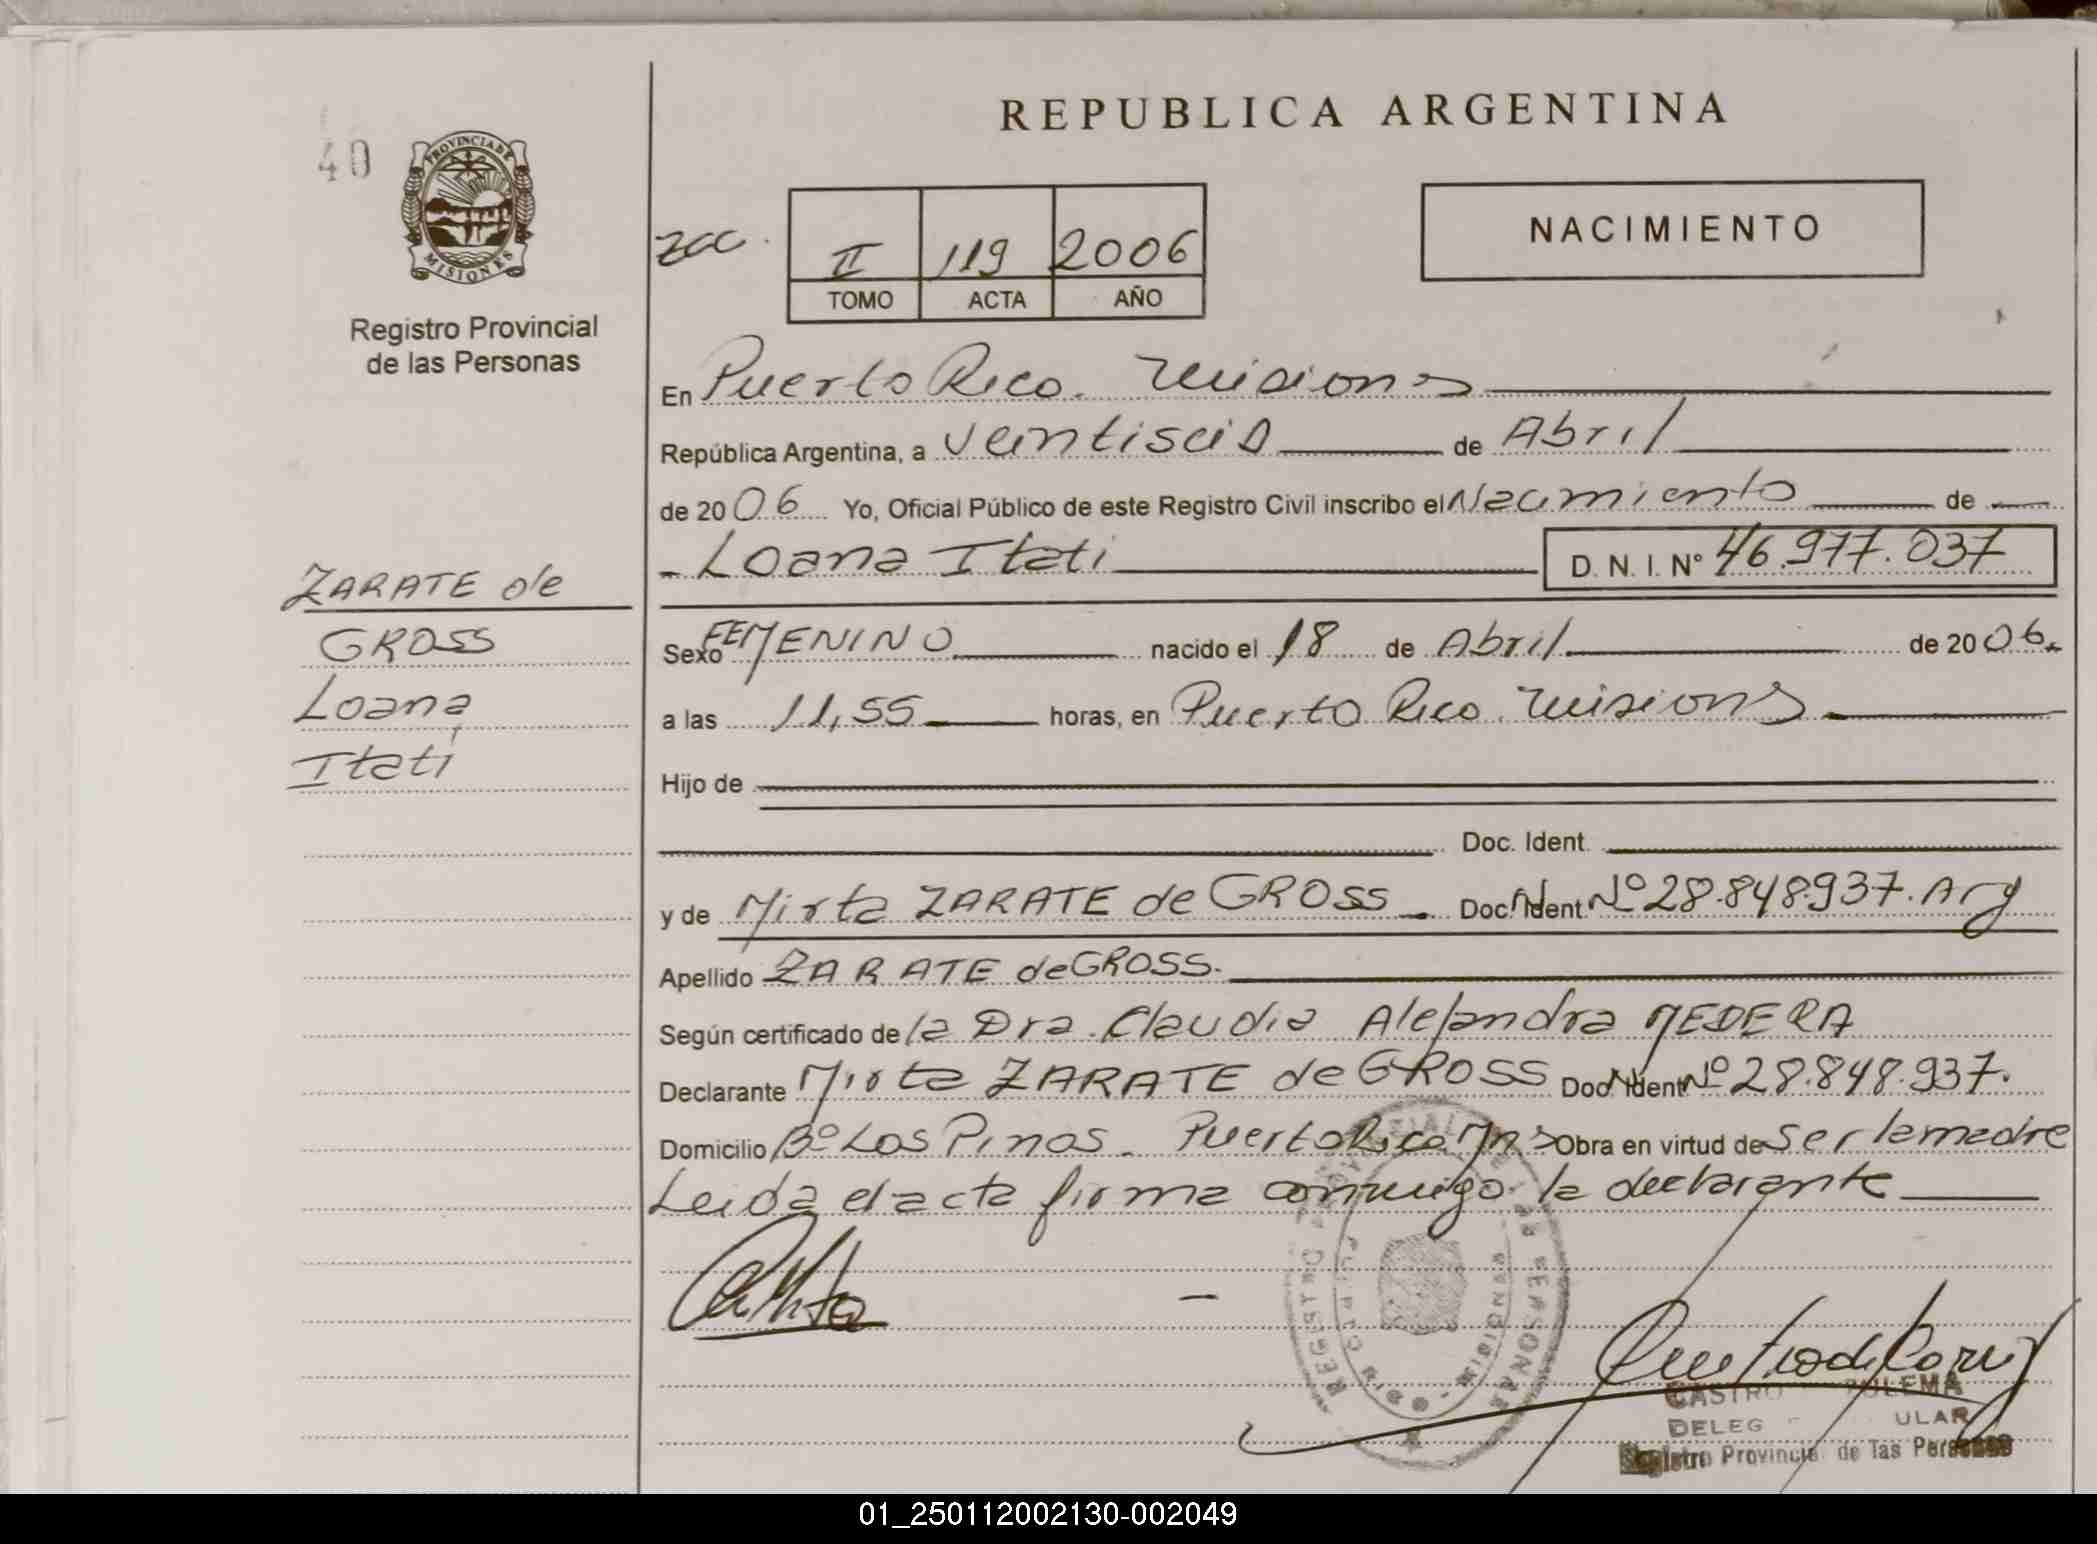 REPUBLICA ARGENTINA
40
PROVINCIA DE
MISIONES
Registro Provincial
de las Personas
zcc.
II 119 2006
TOMO ACTA AÑO
NACIMIENTO
En Puerto Rico. Misiones
República Argentina, a veintiseis de Abril
de 2006 Yo, Oficial Público de este Registro Civil inscribo el Nacimiento de
Loana Itati D. N. I. Nº 46.977.037
ZARATE de
GROSS
Loana
Itatí
Sexo FEMENINO nacido el 18 de Abril de 2006.
a las 11,55 horas, en Puerto Rico. Misiones
Hijo de
Doc. Ident.
y de Mirta ZARATE de GROSS Doc. Ident. Nº 28.848.937. Arg
Apellido ZARATE de GROSS.
Según certificado de la Dra. Claudia Alejandra MEDERA
Declarante Mirta ZARATE de GROSS Doc. Ident Nº 28.848.937.
Domicilio Bº Los Pinos. Puerto Rico Mnes Obra en virtud de Ser la madre
Leida el acta firma conmigo la declarante
REGISTRO DE LAS PERSONAS
MISIONES
CASTRO ZULEMA
DELEG ULAR
Registro Provincial de las Personas
01_250112002130-002049